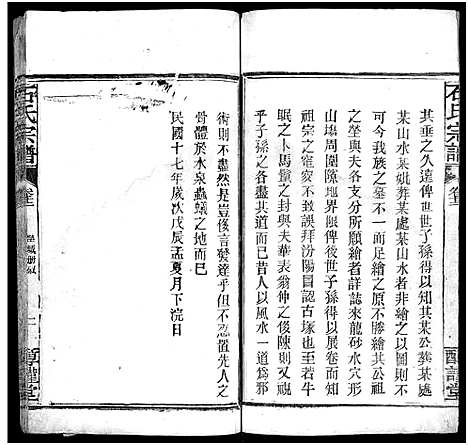 石氏宗譜
其垂之久遠俾世世子孫得以知其某公葬某處
某山水某妣葬某處某山水者非繪不
可今我族之墓不一而足繪之原不勝其繪然公祖
之塋與夫各支分所願繪者詳誌來龍砂水穴形
山塲周圍隣地界限俾後世子孫得以展卷而知
祖宗之窀穸不致誤拜汾陽冒認古塚也至若牛
眠之卜馬鬣之封與夫華表翁仲之後陳則其
小焉者而已昔人以風水一道爲邪
術則不盡然是豈後言發達乎但不忍置先人之
骨體於水泉蟲蟻之地而已
民國十七年歲次戊辰孟夏月下浣日
石氏宗譜